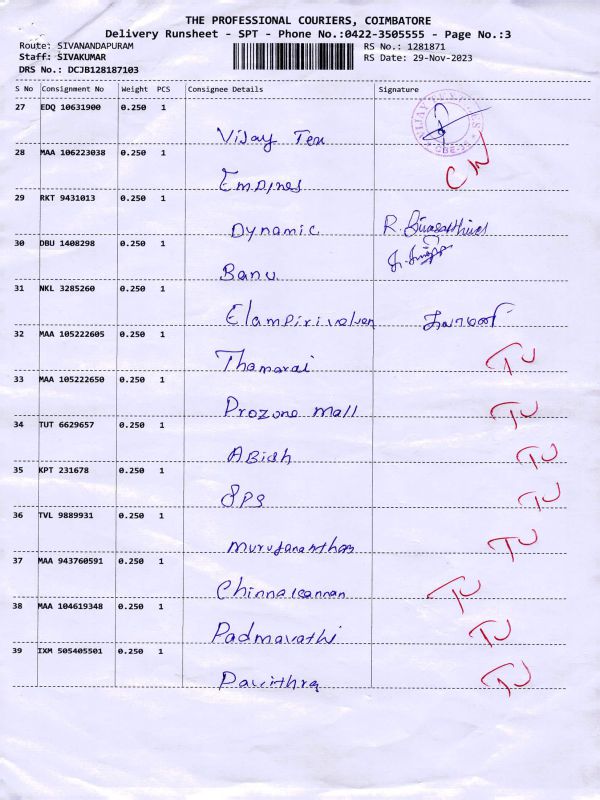 THE PROFESSIONAL COURIERS, COIMBATORE
Delivery Runsheet - SPT - Phone No.:0422-3505555 - Page No.:3
Route: SIVANANDAPURAM RS No.: 1281871
Staff: SIVAKUMAR RS Date: 29-Nov-2023
DRS No.: DCJB128187103
S No Consignment No Weight PCS Consignee Details Signature
27 EDQ 10631900 0.250 1
Vijay Tex
28 MAA 106223038 0.250 1
Empires
29 RKT 9431013 0.250 1
Dynamic
30 DBU 1408298 0.250 1
Banu
31 NKL 3285260 0.250 1
Elampirivalvan
32 MAA 105222605 0.250 1
Thamarai TU
33 MAA 105222650 0.250 1
Prozone mall TU
34 TUT 6629657 0.250 1
ABish TU
35 KPT 231678 0.250 1
SPS TU
36 TVL 9889931 0.250 1
TU
37 MAA 943760591 0.250 1
Chinnakannan TU
38 MAA 104619348 0.250 1
Padmavathi TU
39 IXM 505405501 0.250 1
Pavithra TU